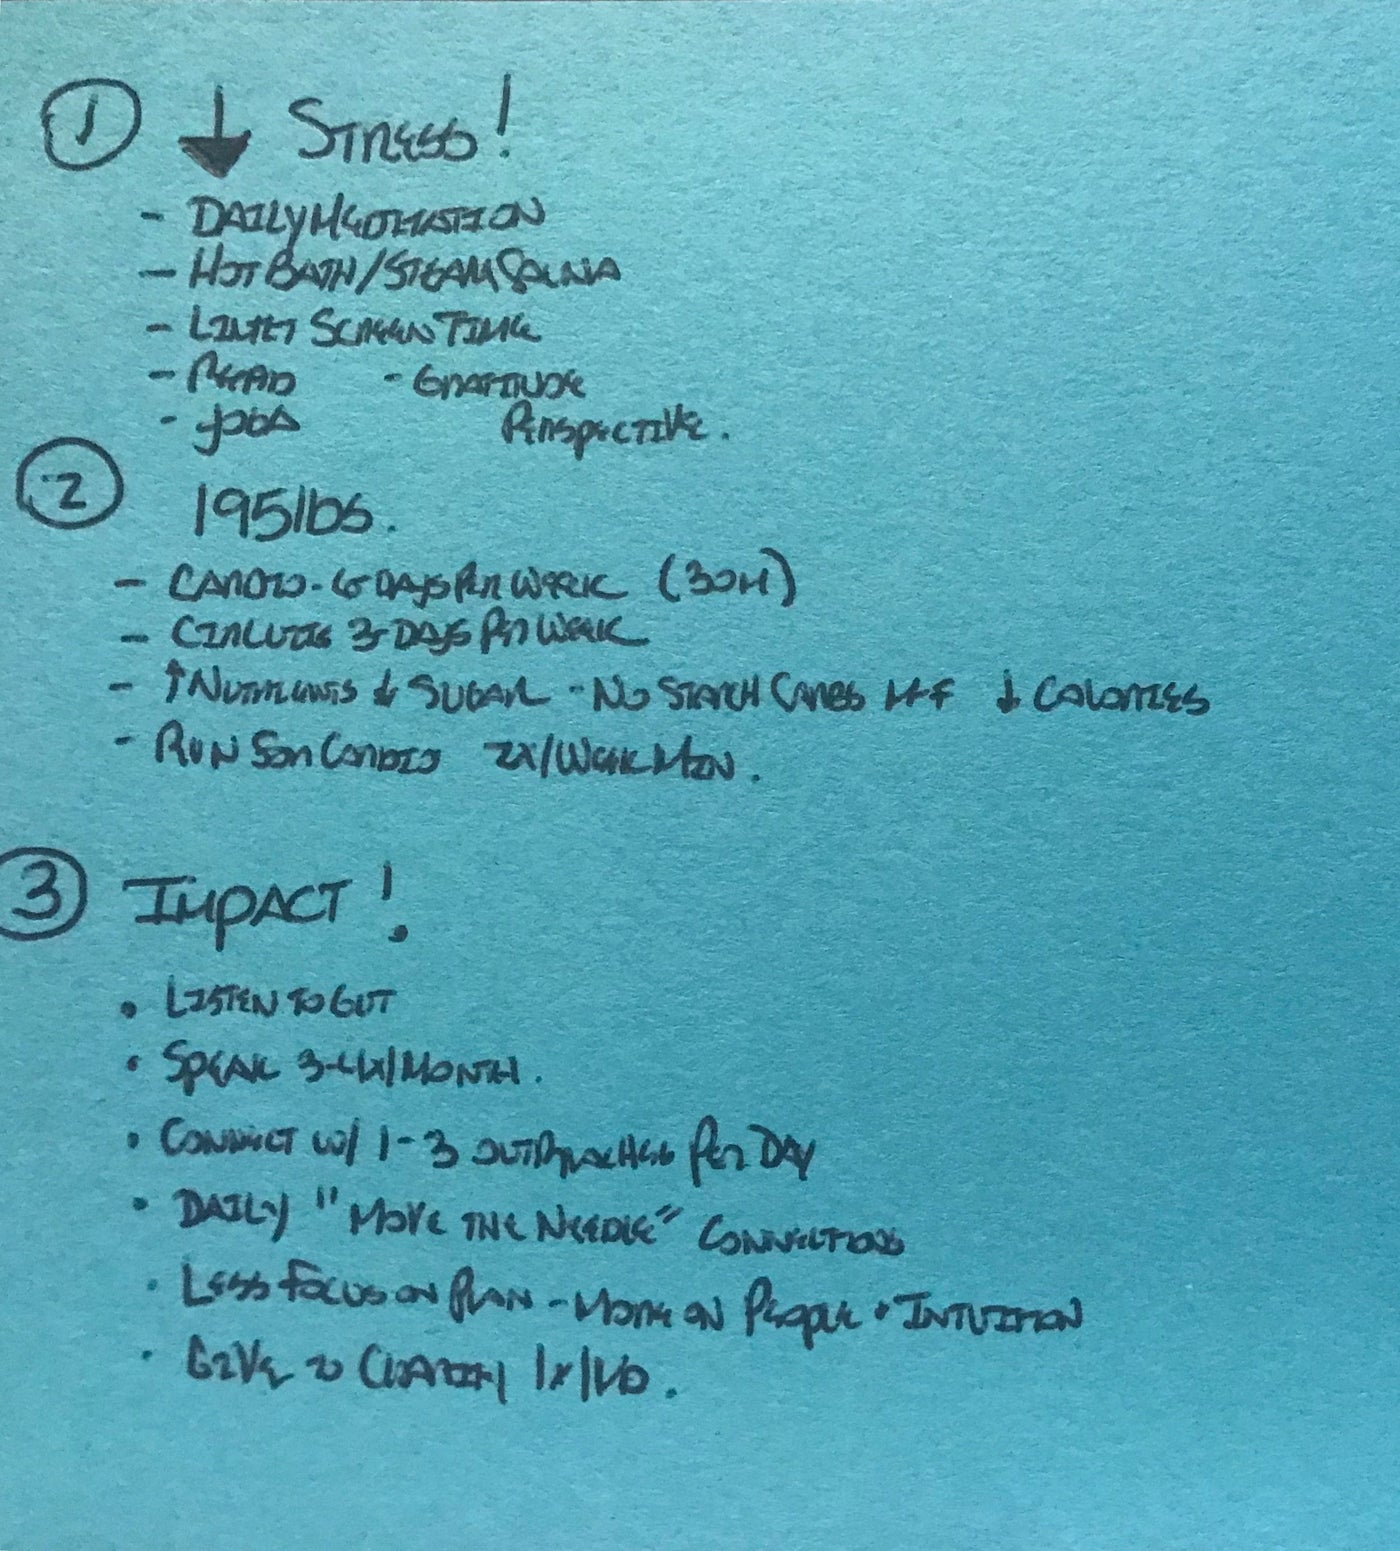 ① ↓ STRESS!
- DAILY MEDITATION
- HOT BATH/STEAM SAUNA
- LIMIT SCREEN TIME
- READ - GRATITUDE
- YOGA PERSPECTIVE.
② 195lbs.
- CARDIO - 6 DAYS PER WEEK (30M)
- CIRCUITS 3 DAYS PER WEEK
- ↑ NUTRIENTS ↓ SUGAR - NO STARCH CARBS M-F ↓ CALORIES
- RUN FOR CARDIO 2X/WEEK MIN.
③ IMPACT!
• LISTEN TO GUT
• SPEAK 3-4X/MONTH.
• CONNECT W/ 1-3 OUTREACHES PER DAY
• DAILY "MOVE THE NEEDLE" CONNECTIONS
• LESS FOCUS ON PLAN - MORE ON PEOPLE + INTUITION
• GIVE TO CHARITY 1X/MO.